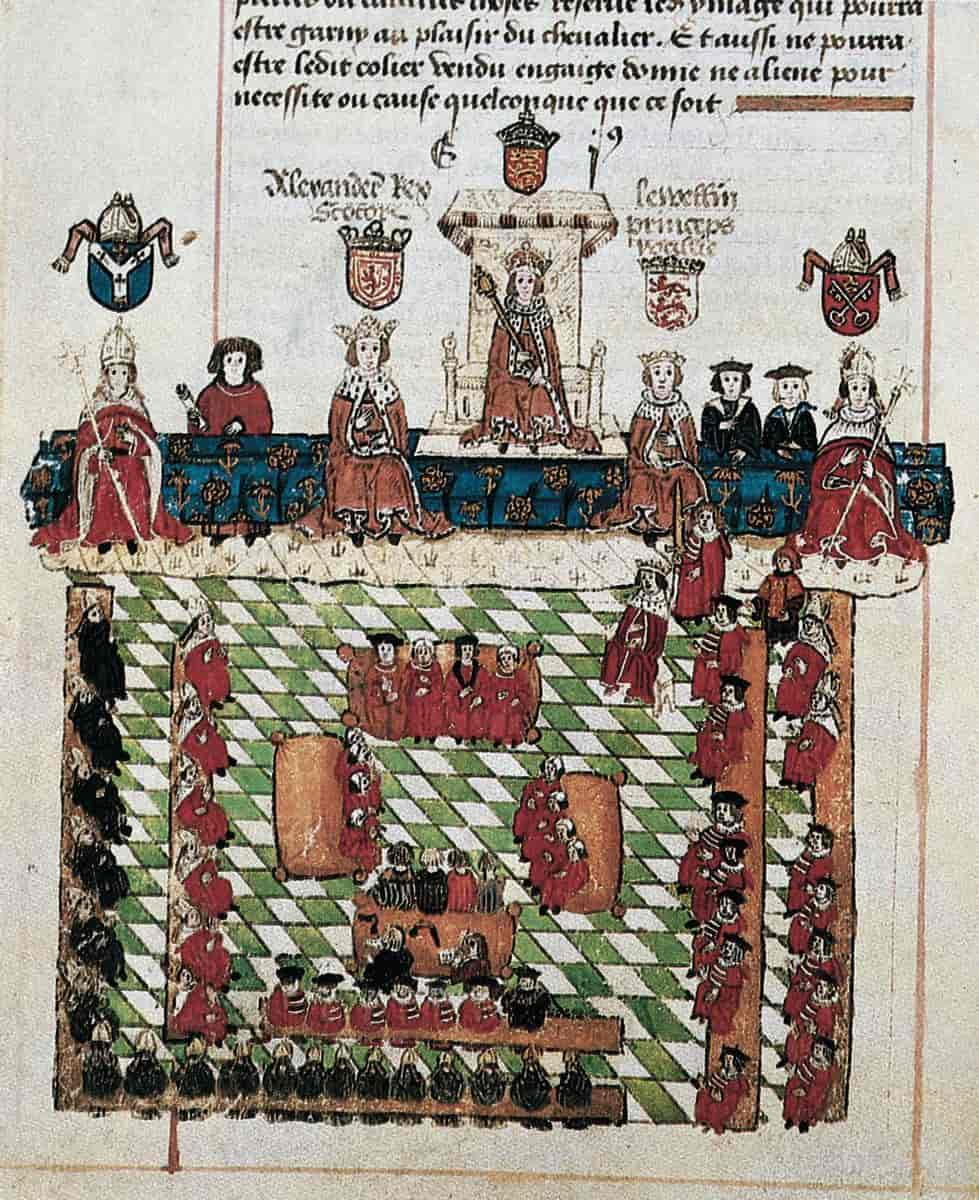 estre garny au plaisir du chevalier. Et aussi ne pourra
estre ledit colier vendu engaige donne ne aliene pour
necessite ou cause quelconque que ce soit
E i9
Alexander Rex
Scotor
lewellin
princeps